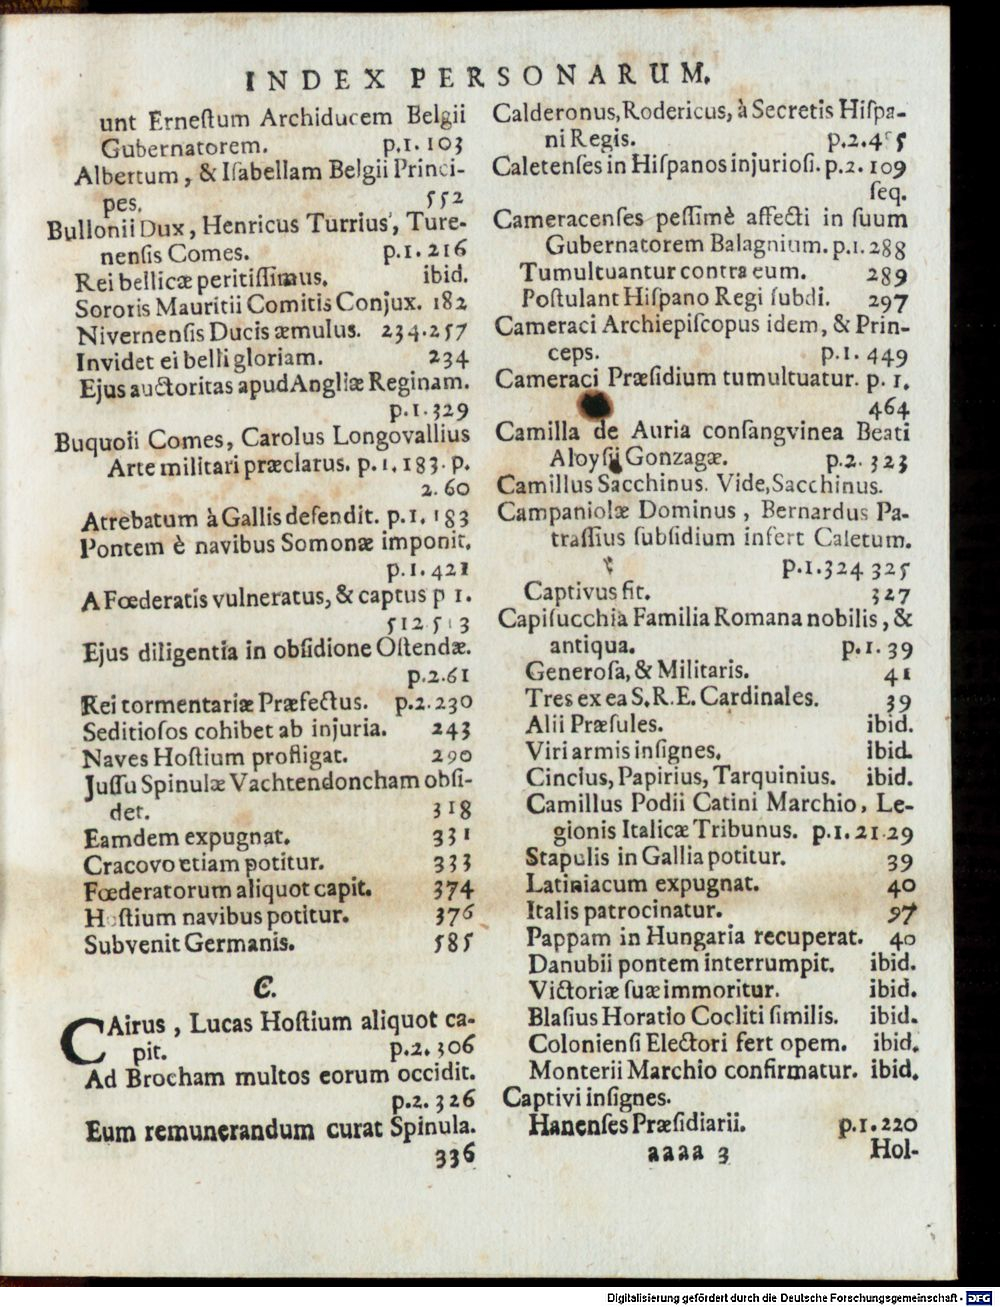 INDEX PERSONARUM.
unt Erneſtum Archiducem Belgii
Gubernatorem. p.1.103
Albertum, & Iſabellam Belgii Princi-
pes. 552
Bullonii Dux, Henricus Turrius, Ture-
nenſis Comes. p.1.216
Rei bellicæ peritiſſimus. ibid.
Sororis Mauritii Comitis Conjux. 182
Nivernenſis Ducis æmulus. 234.257
Invidet ei belli gloriam. 234
Ejus auctoritas apud Angliæ Reginam.
p.1.329
Buquoii Comes, Carolus Longovallius
Arte militari præclarus. p.1.183.p.
2.60
Atrebatum à Gallis defendit. p.1.183
Pontem è navibus Somonæ imponit.
p.1.421
A Fœderatis vulneratus, & captus p 1.
512 513
Ejus diligentia in obſidione Oſtendæ.
p.2.61
Rei tormentariæ Præfectus. p.2.230
Seditioſos cohibet ab injuria. 243
Naves Hoſtium profligat. 290
Juſſu Spinulæ Vachtendoncham obſi-
det. 318
Eamdem expugnat. 331
Cracovo etiam potitur. 333
Fœderatorum aliquot capit. 374
Hoſtium navibus potitur. 376
Subvenit Germanis. 585
C.
CAirus, Lucas Hoſtium aliquot ca-
pit. p.2.306
Ad Brocham multos eorum occidit.
p.2.326
Eum remunerandum curat Spinula.
336
Calderonus, Rodericus, à Secretis Hiſpa-
ni Regis. p.2.455
Caletenſes in Hiſpanos injurioſi. p.2.109
ſeq.
Cameracenſes peſſimè affecti in ſuum
Gubernatorem Balagnium. p.1.288
Tumultuantur contra eum. 289
Poſtulant Hiſpano Regi ſubdi. 297
Cameraci Archiepiſcopus idem, & Prin-
ceps. p.1.449
Cameraci Præſidium tumultuatur. p.1.
464
Camilla de Auria conſangvinea Beati
Aloyſii Gonzagæ. p.2.323
Camillus Sacchinus. Vide, Sacchinus.
Campaniolæ Dominus, Bernardus Pa-
traſſius ſubſidium infert Caletum.
p.1.324 325
Captivus fit. 327
Capiſucchia Familia Romana nobilis, &
antiqua. p.1.39
Generoſa, & Militaris. 41
Tres ex ea S.R.E. Cardinales. 39
Alii Præſules. ibid.
Viri armis inſignes. ibid.
Cincius, Papirius, Tarquinius. ibid.
Camillus Podii Catini Marchio, Le-
gionis Italicæ Tribunus. p.1.21.29
Stapulis in Gallia potitur. 39
Latiniacum expugnat. 40
Italis patrocinatur. 97
Pappam in Hungaria recuperat. 40
Danubii pontem interrumpit. ibid.
Victoriæ ſuæ immoritur. ibid.
Blaſius Horatio Cocliti ſimilis. ibid.
Colonienſi Electori fert opem. ibid.
Monterii Marchio confirmatur. ibid.
Captivi inſignes.
Hanenſes Præſidiarii. p.1.220
aaaa 3 Hol-
Digitalisierung gefördert durch die Deutsche Forschungsgemeinschaft - DFG